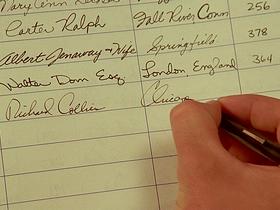 Mary Ann
Carter Ralph Fall River Conn 256
Albert Janaway & Wife Springfield 378
Walter Dorn Esq London England 364
Richard Collier Chicag